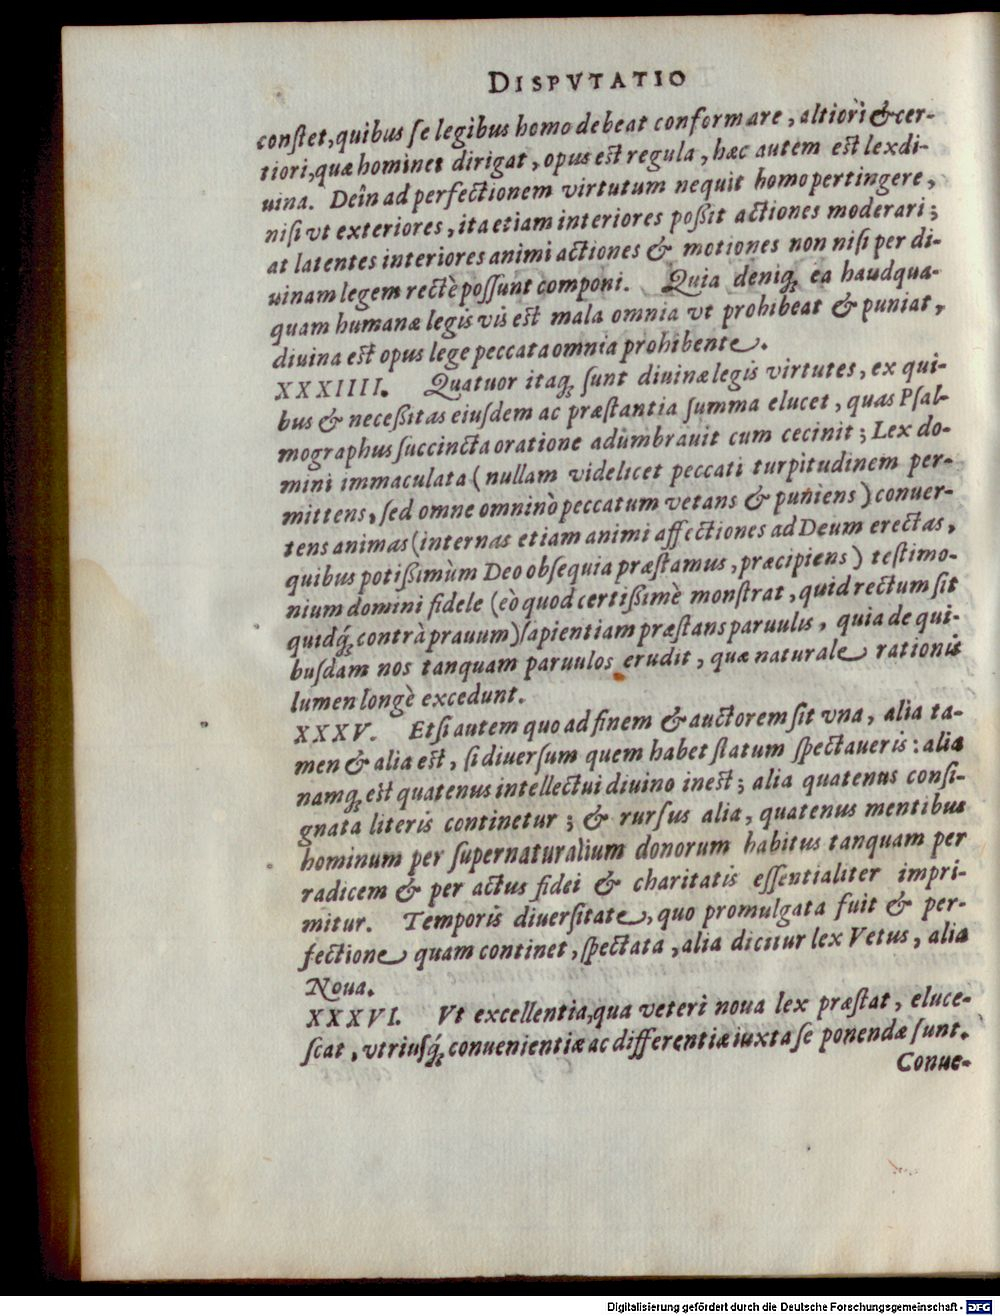 DISPVTATIO
conſtet, quibus ſe legibus homo debeat conformare, altiori & cer-
tiori, quæ homines dirigat, opus est regula, hæc autem est lex di-
uina. Deîn ad perfectionem virtutum nequit homo pertingere,
niſi vt exteriores, ita etiam interiores poßit actiones moderari;
at latentes interiores animi actiones & motiones non niſi per di-
uinam legem rectè poſſunt componi. Quia deniq́; ea haudqua-
quam humanæ legis vis est mala omnia vt prohibeat & puniat,
diuina est opus lege peccata omnia prohibente.
XXXIIII. Quatuor itaq́; ſunt diuinæ legis virtutes, ex qui-
bus & neceßitas eiuſdem ac præstantia ſumma elucet, quas Pſal-
mographus ſuccincta oratione adumbrauit cum cecinit; Lex do-
mini immaculata (nullam videlicet peccati turpitudinem per-
mittens, ſed omne omninò peccatum vetans & puniens) conuer-
tens animas (internas etiam animi affectiones ad Deum erectas,
quibus potißimùm Deo obſequia præſtamus, præcipiens) teſtimo-
nium domini fidele (eò quod certißimè monſtrat, quid rectum ſit
quidq́; contrà prauum) ſapientiam præſtans paruulis, quia de qui-
buſdam nos tanquam paruulos erudit, quæ naturale rationis
lumen longè excedunt.
XXXV. Etſi autem quo ad finem & auctorem ſit vna, alia ta-
men & alia est, ſi diuerſum quem habet ſtatum ſpectaueris: alia
namq́; est quatenus intellectui diuino inest; alia quatenus conſi-
gnata literis continetur; & rurſus alia, quatenus mentibus
hominum per ſupernaturalium donorum habitus tanquam per
radicem & per actus fidei & charitatis eſſentialiter impri-
mitur. Temporis diuerſitate, quo promulgata fuit & per-
fectione quam continet, ſpectata, alia dicitur lex Vetus, alia
Noua.
XXXVI. Vt excellentia, qua veteri noua lex præſtat, eluce-
ſcat, vtriuſq́; conuenientiæ ac differentiæ iuxta ſe ponendæ ſunt.
Conue-
Digitalisierung gefördert durch die Deutsche Forschungsgemeinschaft - DFG